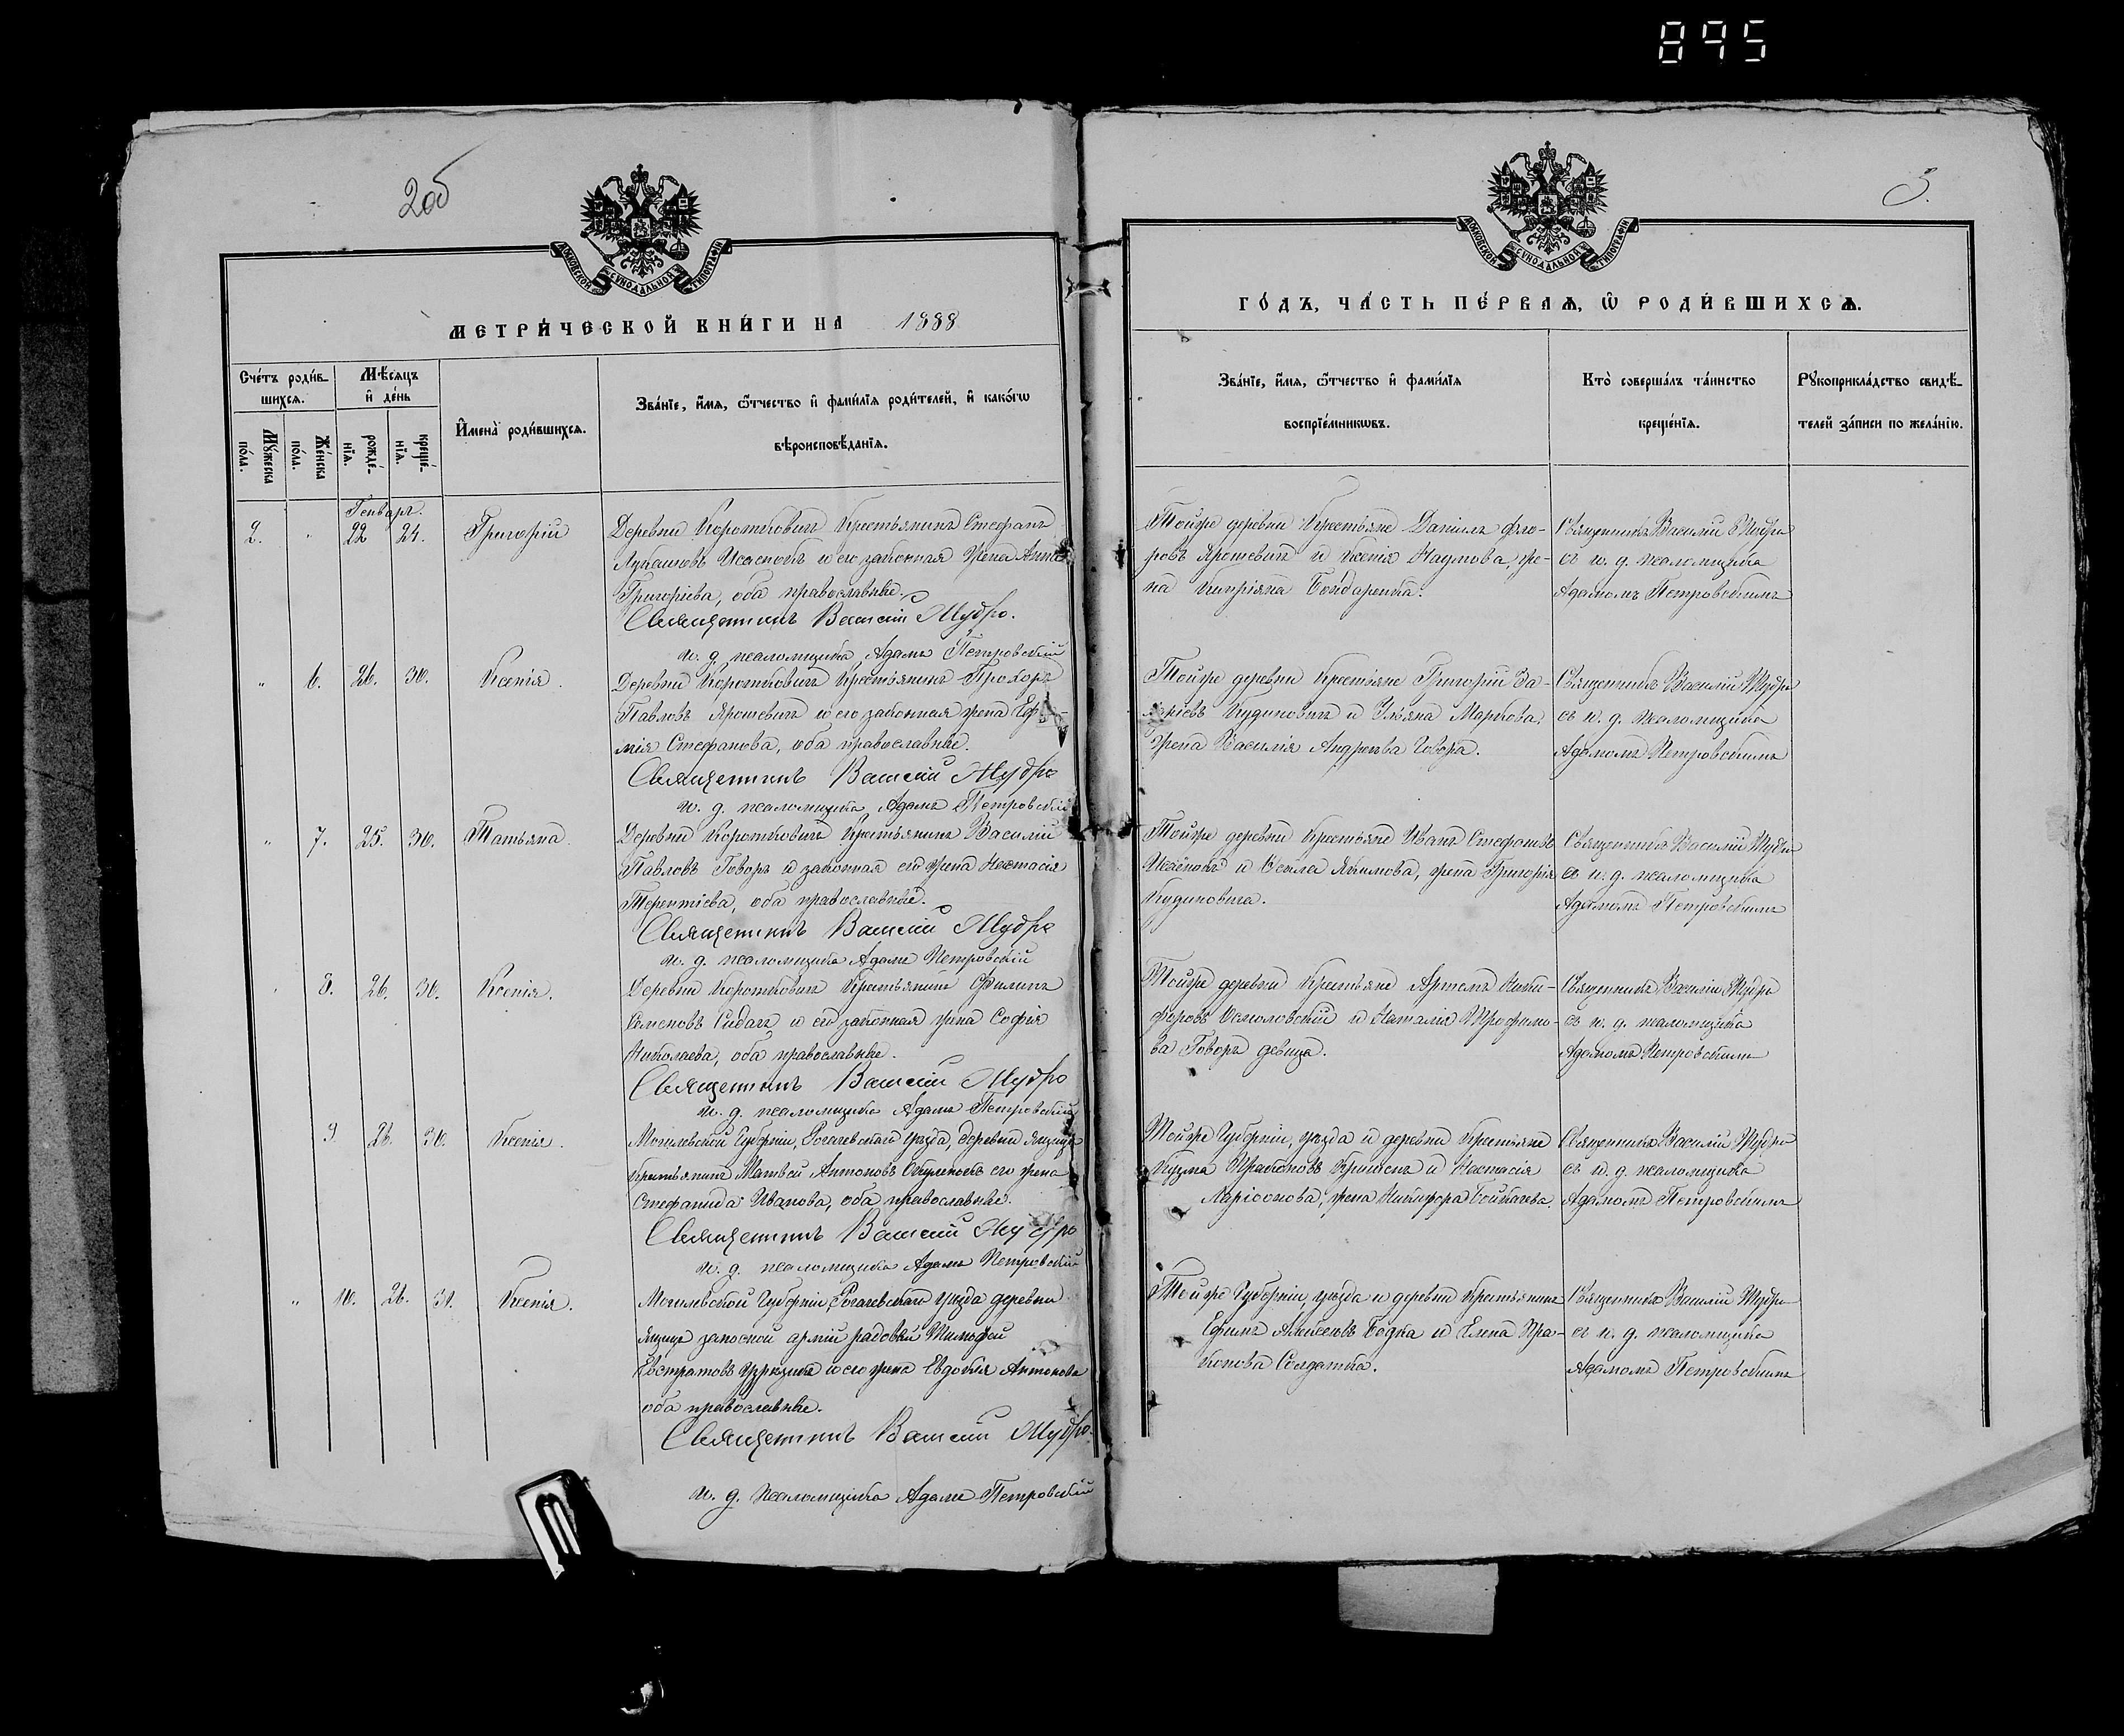 895
2об
3.
МОСКОВСКОЙ СѴНОДАЛЬНОЙ ТИПОГРАФІИ
МОСКОВСКОЙ СѴНОДАЛЬНОЙ ТИПОГРАФІИ
МЕТРИ́ЧЕСКОЙ КНИ́ГИ НА 1888
ГО́ДЪ, ЧА́СТЬ ПЕ́РВАѦ, Ѿ РОДИ́ВШИХСѦ.
Сче́тъ роди́в-
шихсѧ.
Мꙋ́жеска
по́ла.
Же́нска
по́ла.
Мѣ́сѧцъ
и҆ де́нь
рожде́-
нїѧ.
креще́-
нїѧ.
И҆мена̀ роди́вшихсѧ.
Зва́нїе, и҆́мѧ, ѻ҆́тчество и҆ фами́лїѧ роди́телей, и҆ како́гѡ
вѣроисповѣ́данїѧ.
Зва́нїе, и҆́мѧ, ѻ҆́тчество и҆ фами́лїѧ
воспрїе́мникѡвъ.
Кто̀ соверша́лъ та́инство
креще́нїѧ.
Рꙋкоприкла́дство свидѣ́-
телей за́писи по жела́нїю.
Генварь.
2. " 22 24. Григорій
Деревни Короткович Крестьянинъ Стефанъ
Лукашовъ и его законная жена Анна
Григоріева, оба православные.
Священникъ Василій Мудро.
и. д. псаломщика Адамъ Петровскій
Тойже деревни Крестьяне Даніилъ Фло-
ровъ Ярошевичъ и Ксенія Наумова, же-
на Кипріяна Бондаренка.
Священникъ Василій Мудро
съ и. д. псаломщика
Адамомъ Петровскимъ
" 6. 26. 30. Ксенія.
Деревни Короткович Крестьянинъ Прохоръ
Павловъ Ярошевичъ и его законная жена Еф-
мія Стефанова, оба православные.
Священникъ Василій Мудро
и. д. псаломщика Адамъ Петровскій
Тойже деревни Крестьяне Григорій За-
харіевъ Кудиновичъ и Ульяна Маркова,
жена Василія Андреева Говора.
Священникъ Василій Мудро
съ и. д. псаломщика
Адамомъ Петровскимъ
" 7. 25. 30. Татьяна.
Деревни Короткович Крестьянинъ Василій
Павловъ Говоръ и законная его жена Настасія
Терентіева, оба православные.
Священникъ Василій Мудро
и. д. псаломщика Адамъ Петровскій
Тойже деревни Крестьяне Иванъ Стефановъ
и Якимова, жена Григорія
Кудиновича.
Священникъ Василій Мудро
съ и. д. псаломщика
Адамомъ Петровскимъ
8. 26. 30. Ксенія.
Деревни Короткович Крестьянинъ Филипъ
Семеновъ и его законная жена Софія
Николаева, оба православные.
Священникъ Василій Мудро
и. д. псаломщика Адамъ Петровскій
Тойже деревни Крестьяне Артемъ Ники-
форовъ Осмоловскій и Наталія Трофимо-
ва Говоръ девица.
Священникъ Василій Мудро
съ и. д. псаломщика
Адамомъ Петровскимъ
9. 26. 30. Ксенія.
Могилевской Губерніи, Рогачевскаго уезда, деревни
Крестьянинъ Матвей Антоновъ его жена
Стефанида Иванова, оба православные.
Священникъ Василій Мудро
и. д. псаломщика Адамъ Петровскій
Тойже Губерніи, уезда и деревни Крестьяне
Кузма и Настасія
Ларіонова, жена Никифора
Священникъ Василій Мудро
съ и. д. псаломщика
Адамомъ Петровскимъ
" 10. 26. 31. Ксенія.
Могилевской Губерніи Рогачевскаго уезда деревни
запасной арміи рядовой Тимофей
Евстратовъ и его жена Евдокія Антонова
оба православные.
Священникъ Василій Мудро.
и. д. псаломщика Адамъ Петровскій
Тойже Губерніи, уезда и деревни Крестьянинъ
Ефимъ Алексеевъ и Елена Пра-
копова Солдатка.
Священникъ Василій Мудро
съ и. д. псаломщика
Адамомъ Петровскимъ